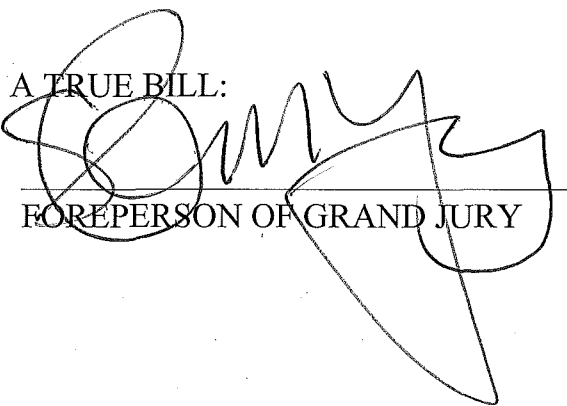 A TRUE BILL:
FOREPERSON OF GRAND JURY